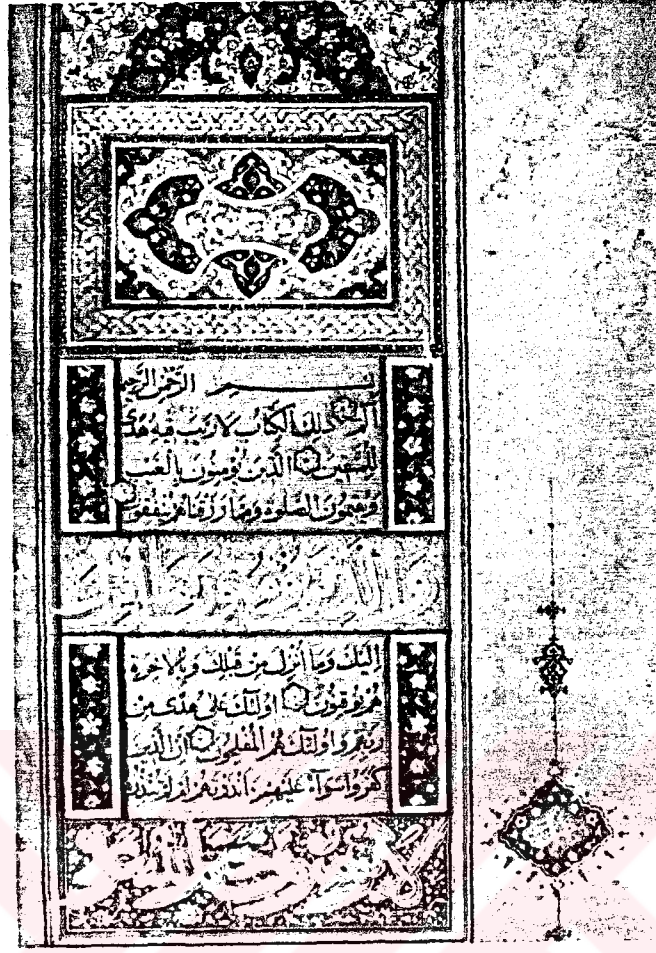 بسم الله الرحمن الرحيم
الم ذلك الكتاب لا ريب فيه هدى
للمتقين الذين يؤمنون بالغيب
ويقيمون الصلوة ومما رزقناهم ينفقون
والذين يؤمنون بما انزل
اليك وما انزل من قبلك وبالاخرة
هم يوقنون اولئك على هدى من
ربهم واولئك هم المفلحون ان الذين
كفروا سواء عليهم ءانذرتهم ام لم تنذرهم
لا يؤمنون ختم الله